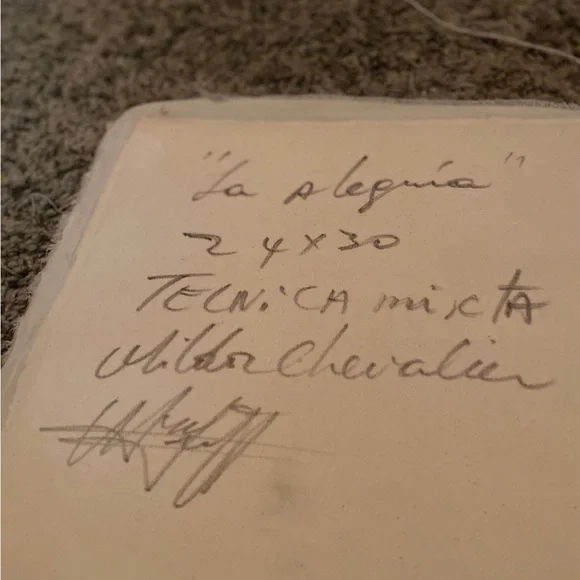 "La alegria"
24x30
TECNiCA mixtA
Chevalier